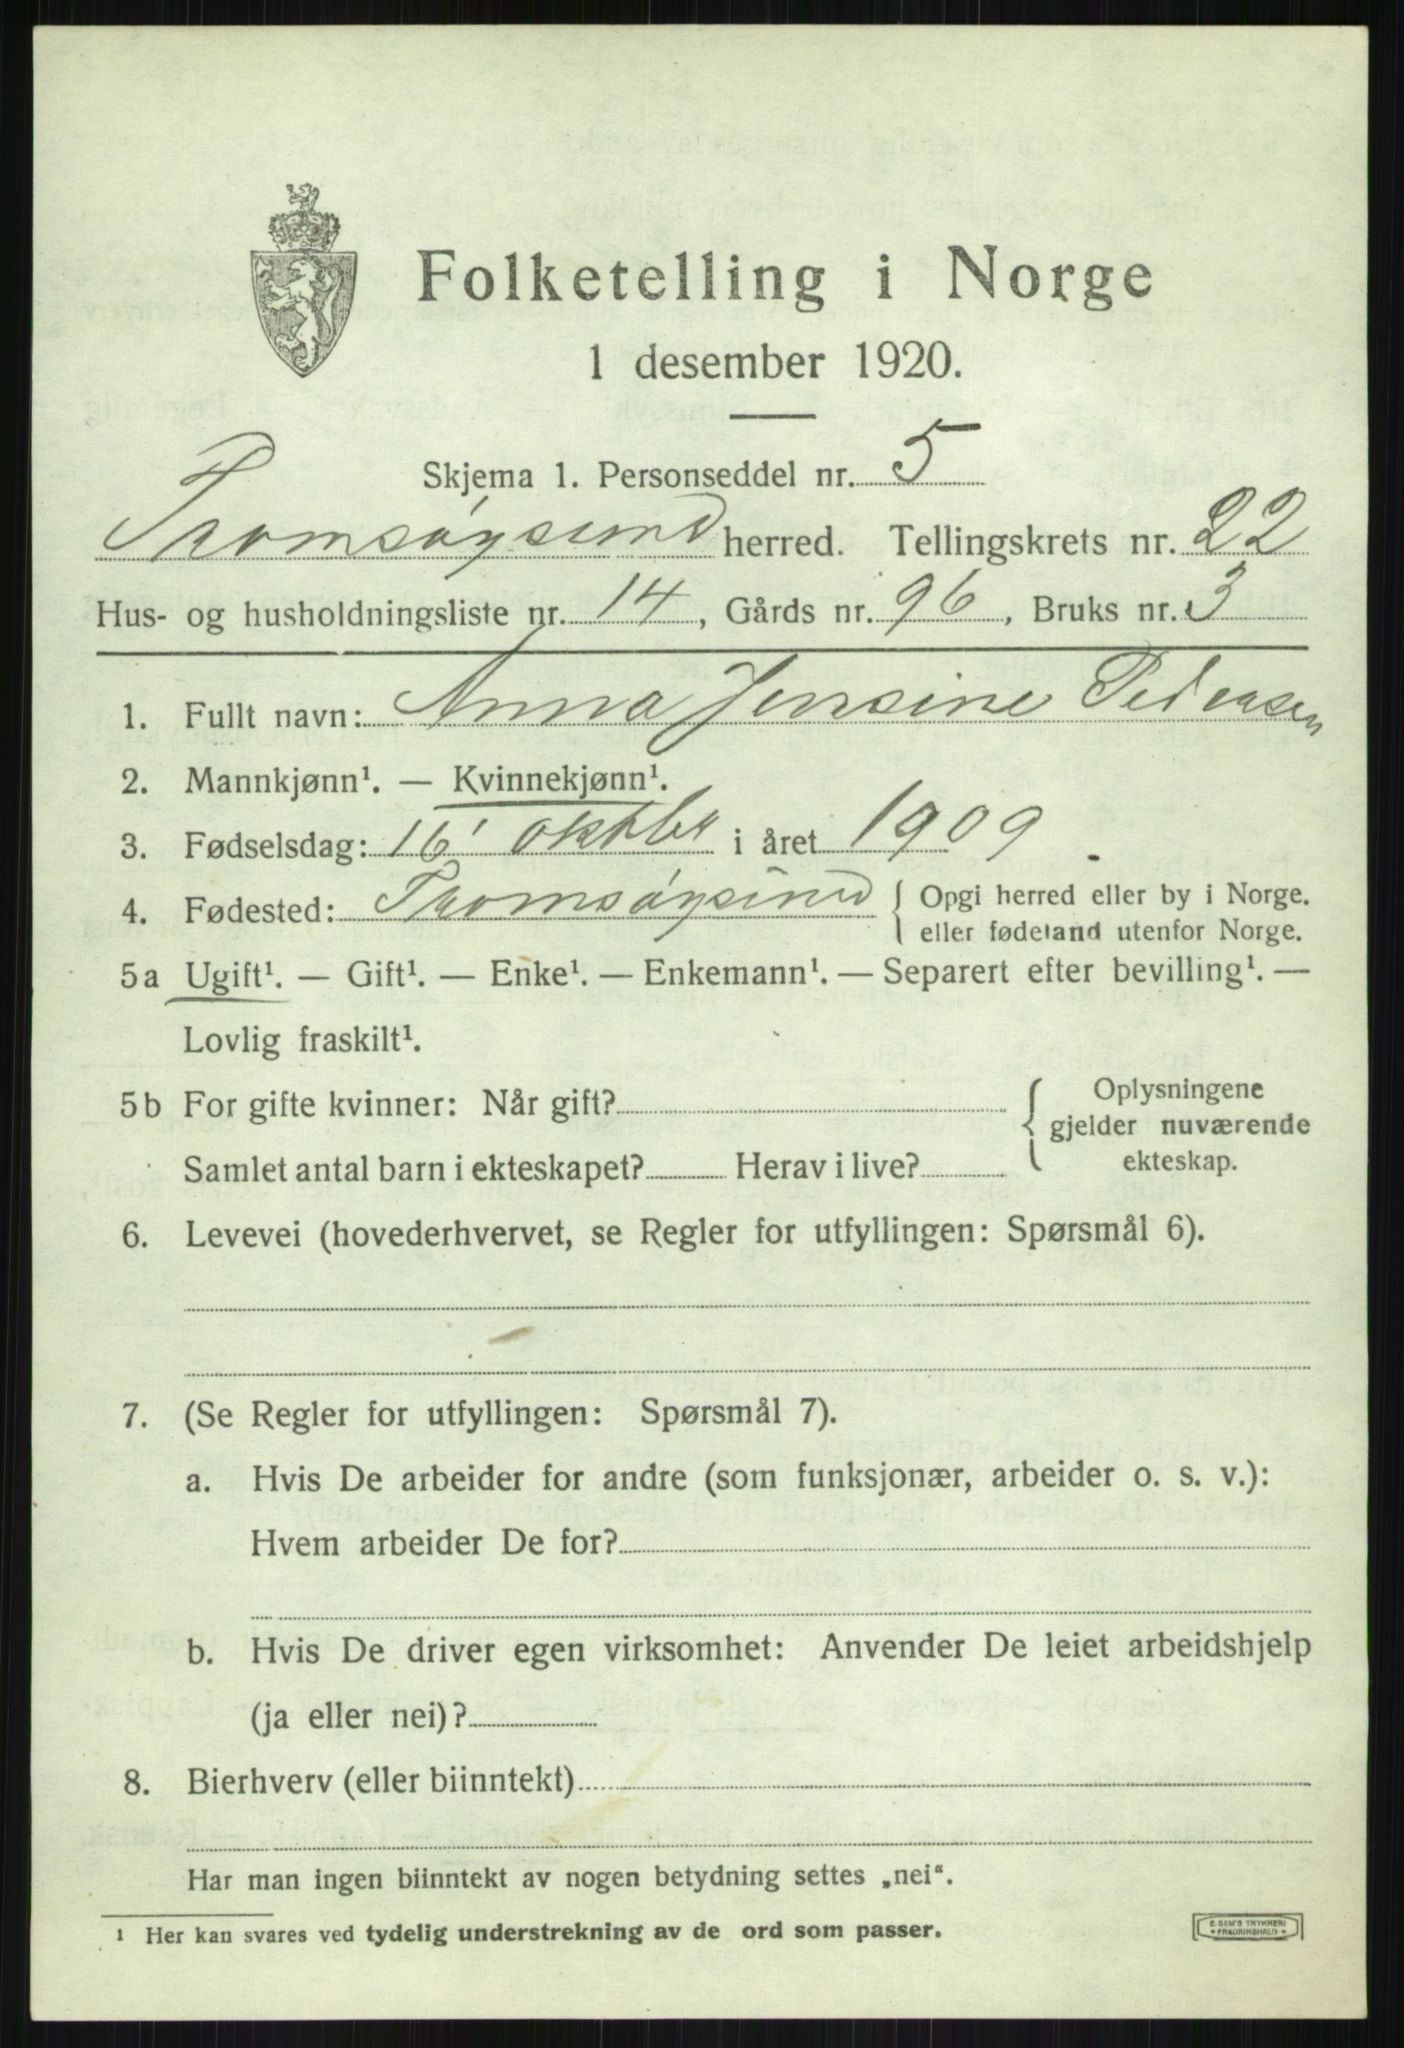 Folketelling i Norge
1 desember 1920.
Skjema 1. Personseddel nr. 5
Tromsøysund herred. Tellingskrets nr. 22
Hus- og husholdningsliste nr. 14, Gårds nr. 96, Bruks nr. 3
1. Fullt navn: Anna Jensine Pedersen
2. Mannkjønn¹. — Kvinnekjønn¹.
3. Fødselsdag: 16' oktbr i året 1909
4. Fødested: Tromsøysund { Opgi herred eller by i Norge.
eller fødeland utenfor Norge.
5a Ugift¹. — Gift¹. — Enke¹. — Enkemann¹. — Separert efter bevilling¹. —
Lovlig fraskilt¹.
5b For gifte kvinner: Når gift? { Oplysningene
gjelder nuværende
Samlet antal barn i ekteskapet? Herav i live? ekteskap.
6. Levevei (hovederhvervet, se Regler for utfyllingen: Spørsmål 6).
7. (Se Regler for utfyllingen: Spørsmål 7).
a. Hvis De arbeider for andre (som funksjonær, arbeider o. s. v.):
Hvem arbeider De for?
b. Hvis De driver egen virksomhet: Anvender De leiet arbeidshjelp
(ja eller nei)?
8. Bierhverv (eller biinntekt)
Har man ingen biinntekt av nogen betydning settes „nei“.
¹ Her kan svares ved tydelig understrekning av de ord som passer.
E. SEM'S TRYKKERI
FREDRIKSHALD